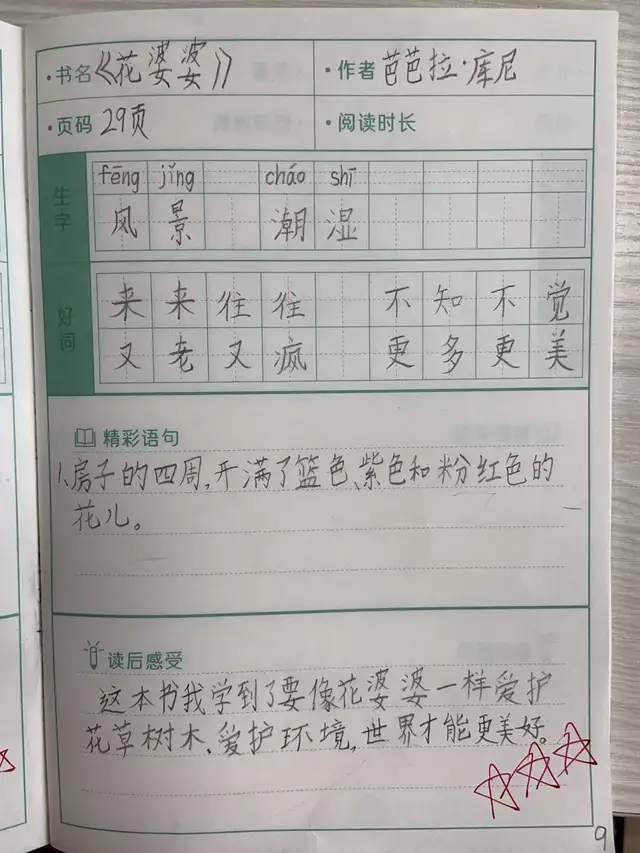 ·书名《花婆婆》 ·作者 芭芭拉·库尼
·页码 29页 ·阅读时长
生字
fēng jǐng cháo shī
风景 潮湿
好词
来来往往 不知不觉
又老又疯 更多更美
精彩语句
1、房子的四周,开满了篮色、紫色和粉红色的
花儿。
读后感受
这本书我学到了要像花婆婆一样爱护
花草树木、爱护环境,世界才能更美好。
9